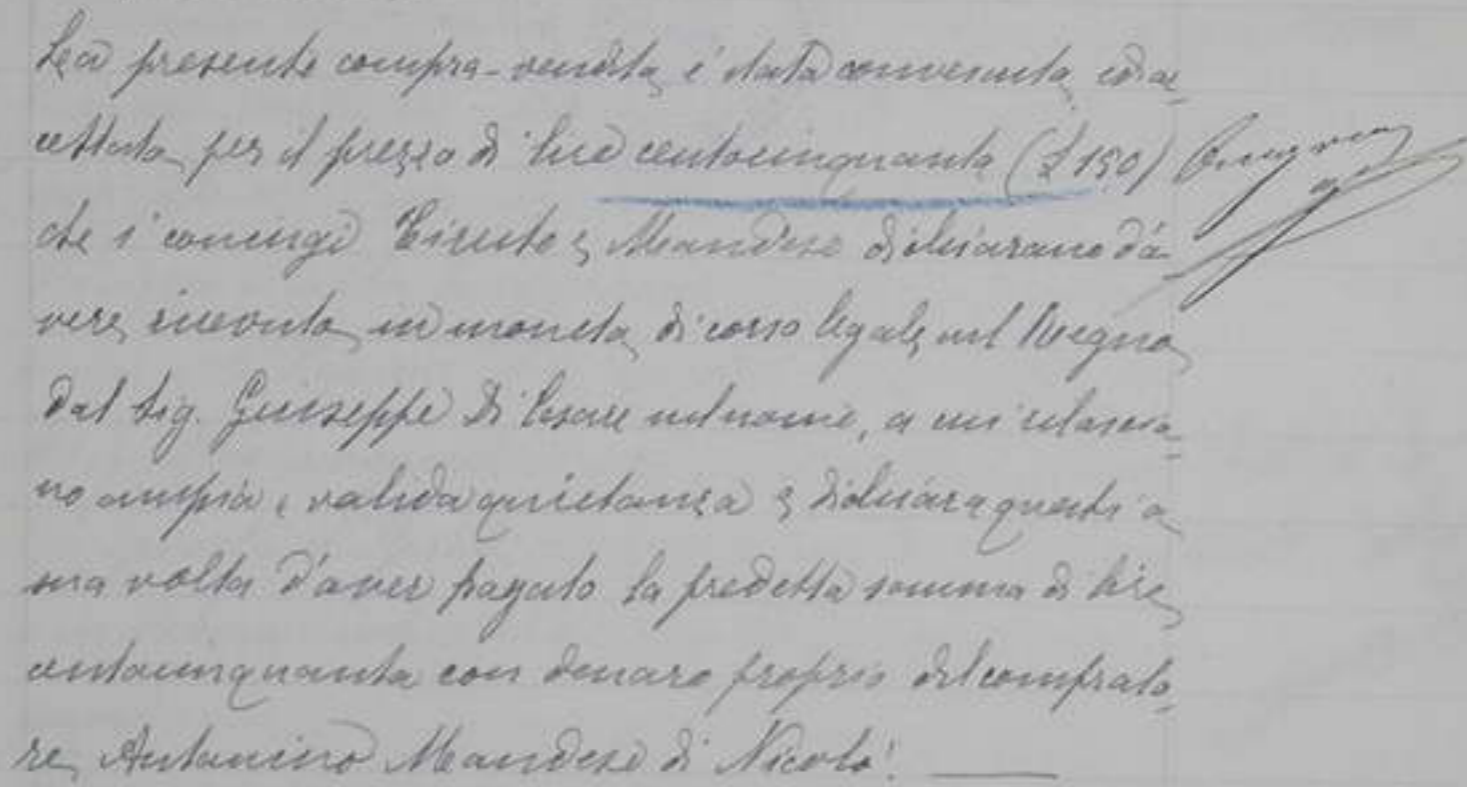 La presente compra-vendita è stata convenuta ed ac-
cettata per il prezzo di lire centocinquanta (£ 150)
che i coniugi e Mandese dichiarano d'a-
vere ricevuto in moneta di corso legale nel Regno
dal Sig. Giuseppe Di Cesare nel nome, a cui rilascia-
no ampia e valida quietanza e dichiara questi a
sua volta d'aver pagato la predetta somma di lire
centocinquanta con denaro proprio del comprato-
re Antonino Mandese di Nicolò.